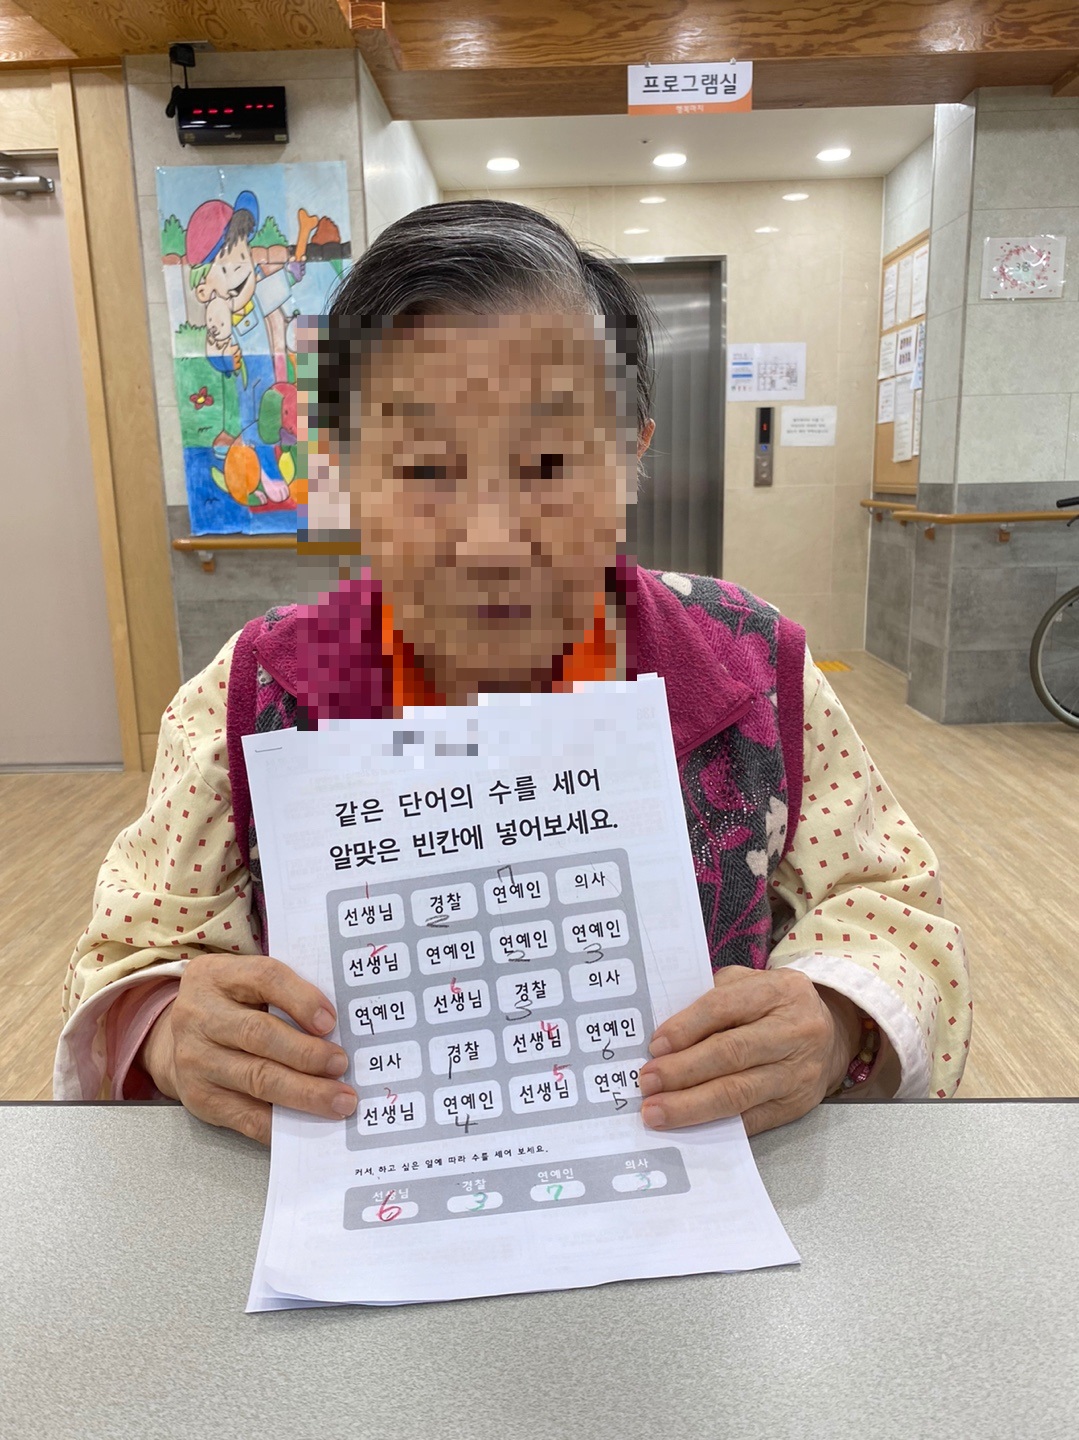 프로그램실
행복마지
3층
같은 단어의 수를 세어
알맞은 빈칸에 넣어보세요.
1 7
선생님 경찰 연예인 의사
2
2
선생님 연예인 연예인 연예인
2 3
6
연예인 선생님 경찰 의사
1 3
4
의사 경찰 선생님 연예인
1 6
3 5
선생님 연예인 선생님 연예인
4 5
커서, 하고 싶은 일에 따라 수를 세어 보세요.
선생님 경찰 연예인 의사
6 3 7 3